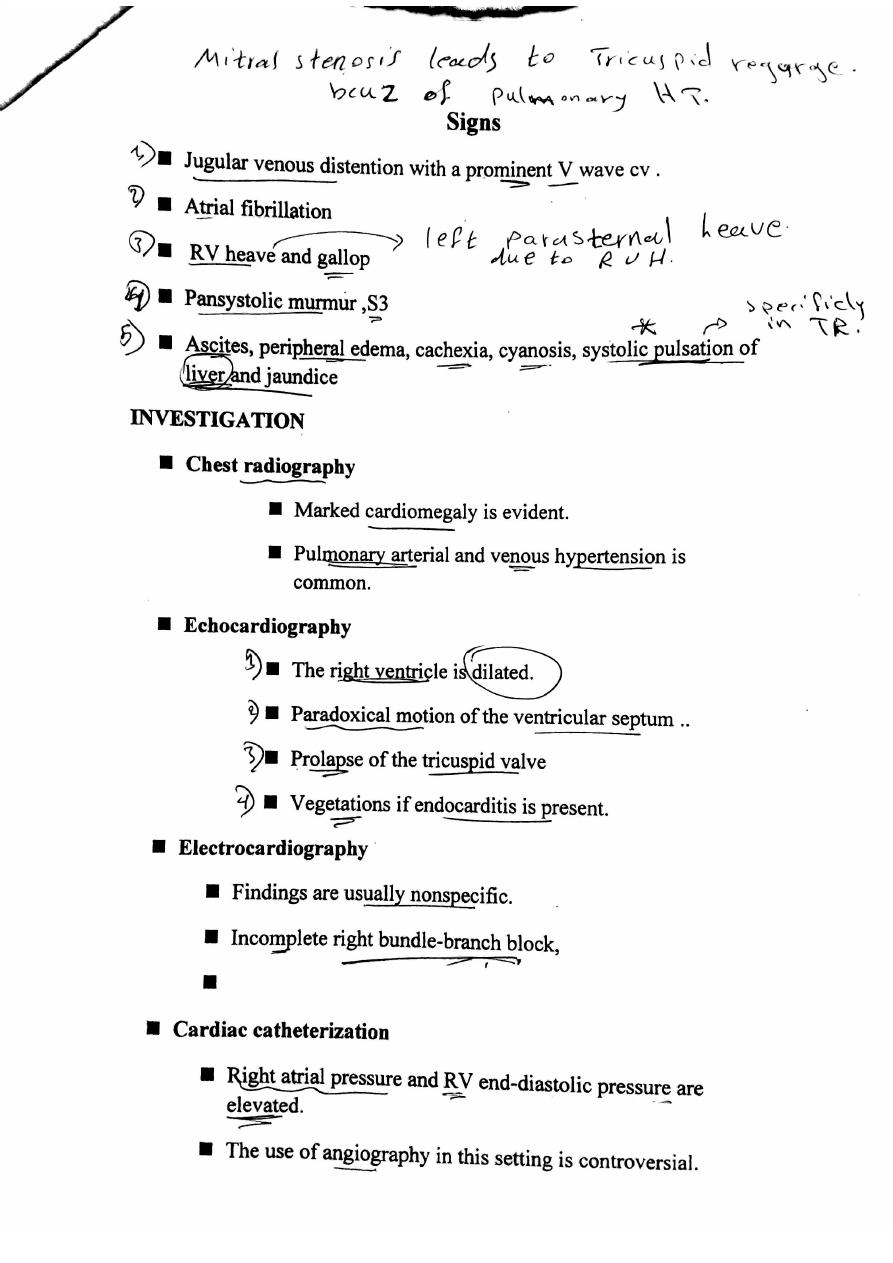 Mitral stenosis leads to Tricuspid regarge.
bcuz of pulmonary HT.
Signs
1) ■ Jugular venous distention with a prominent V wave cv .
2) ■ Atrial fibrillation
3) ■ RV heave and gallop → left parasternal heave
due to RVH.
4) ■ Pansystolic murmur ,S3
specificly
in TR.
5) ■ Ascites, peripheral edema, cachexia, cyanosis, systolic pulsation of
liver and jaundice
INVESTIGATION
■ Chest radiography
■ Marked cardiomegaly is evident.
■ Pulmonary arterial and venous hypertension is
common.
■ Echocardiography
1) ■ The right ventricle is dilated.
2) ■ Paradoxical motion of the ventricular septum ..
3) ■ Prolapse of the tricuspid valve
4) ■ Vegetations if endocarditis is present.
■ Electrocardiography
■ Findings are usually nonspecific.
■ Incomplete right bundle-branch block,
■
■ Cardiac catheterization
■ Right atrial pressure and RV end-diastolic pressure are
elevated.
■ The use of angiography in this setting is controversial.